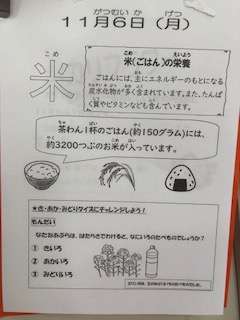 がつむいか　げつ
11月6日（月）
こめ
米
こめ　えいよう
米(ごはん)の栄養
ごはんには、主にエネルギーのもとになる
炭水化物が多く含まれています。また、たんぱく
質やビタミンなども含んでいます。
茶わん1杯のごはん(約150グラム)には、
約3200つぶのお米が入っています。
★き・あか・みどりクイズにチャレンジしよう！
もんだい
なたねあぶらは、はたらきでわけると、なにいろのたべものでしょうか？
① きいろ
② あかいろ
③ みどりいろ